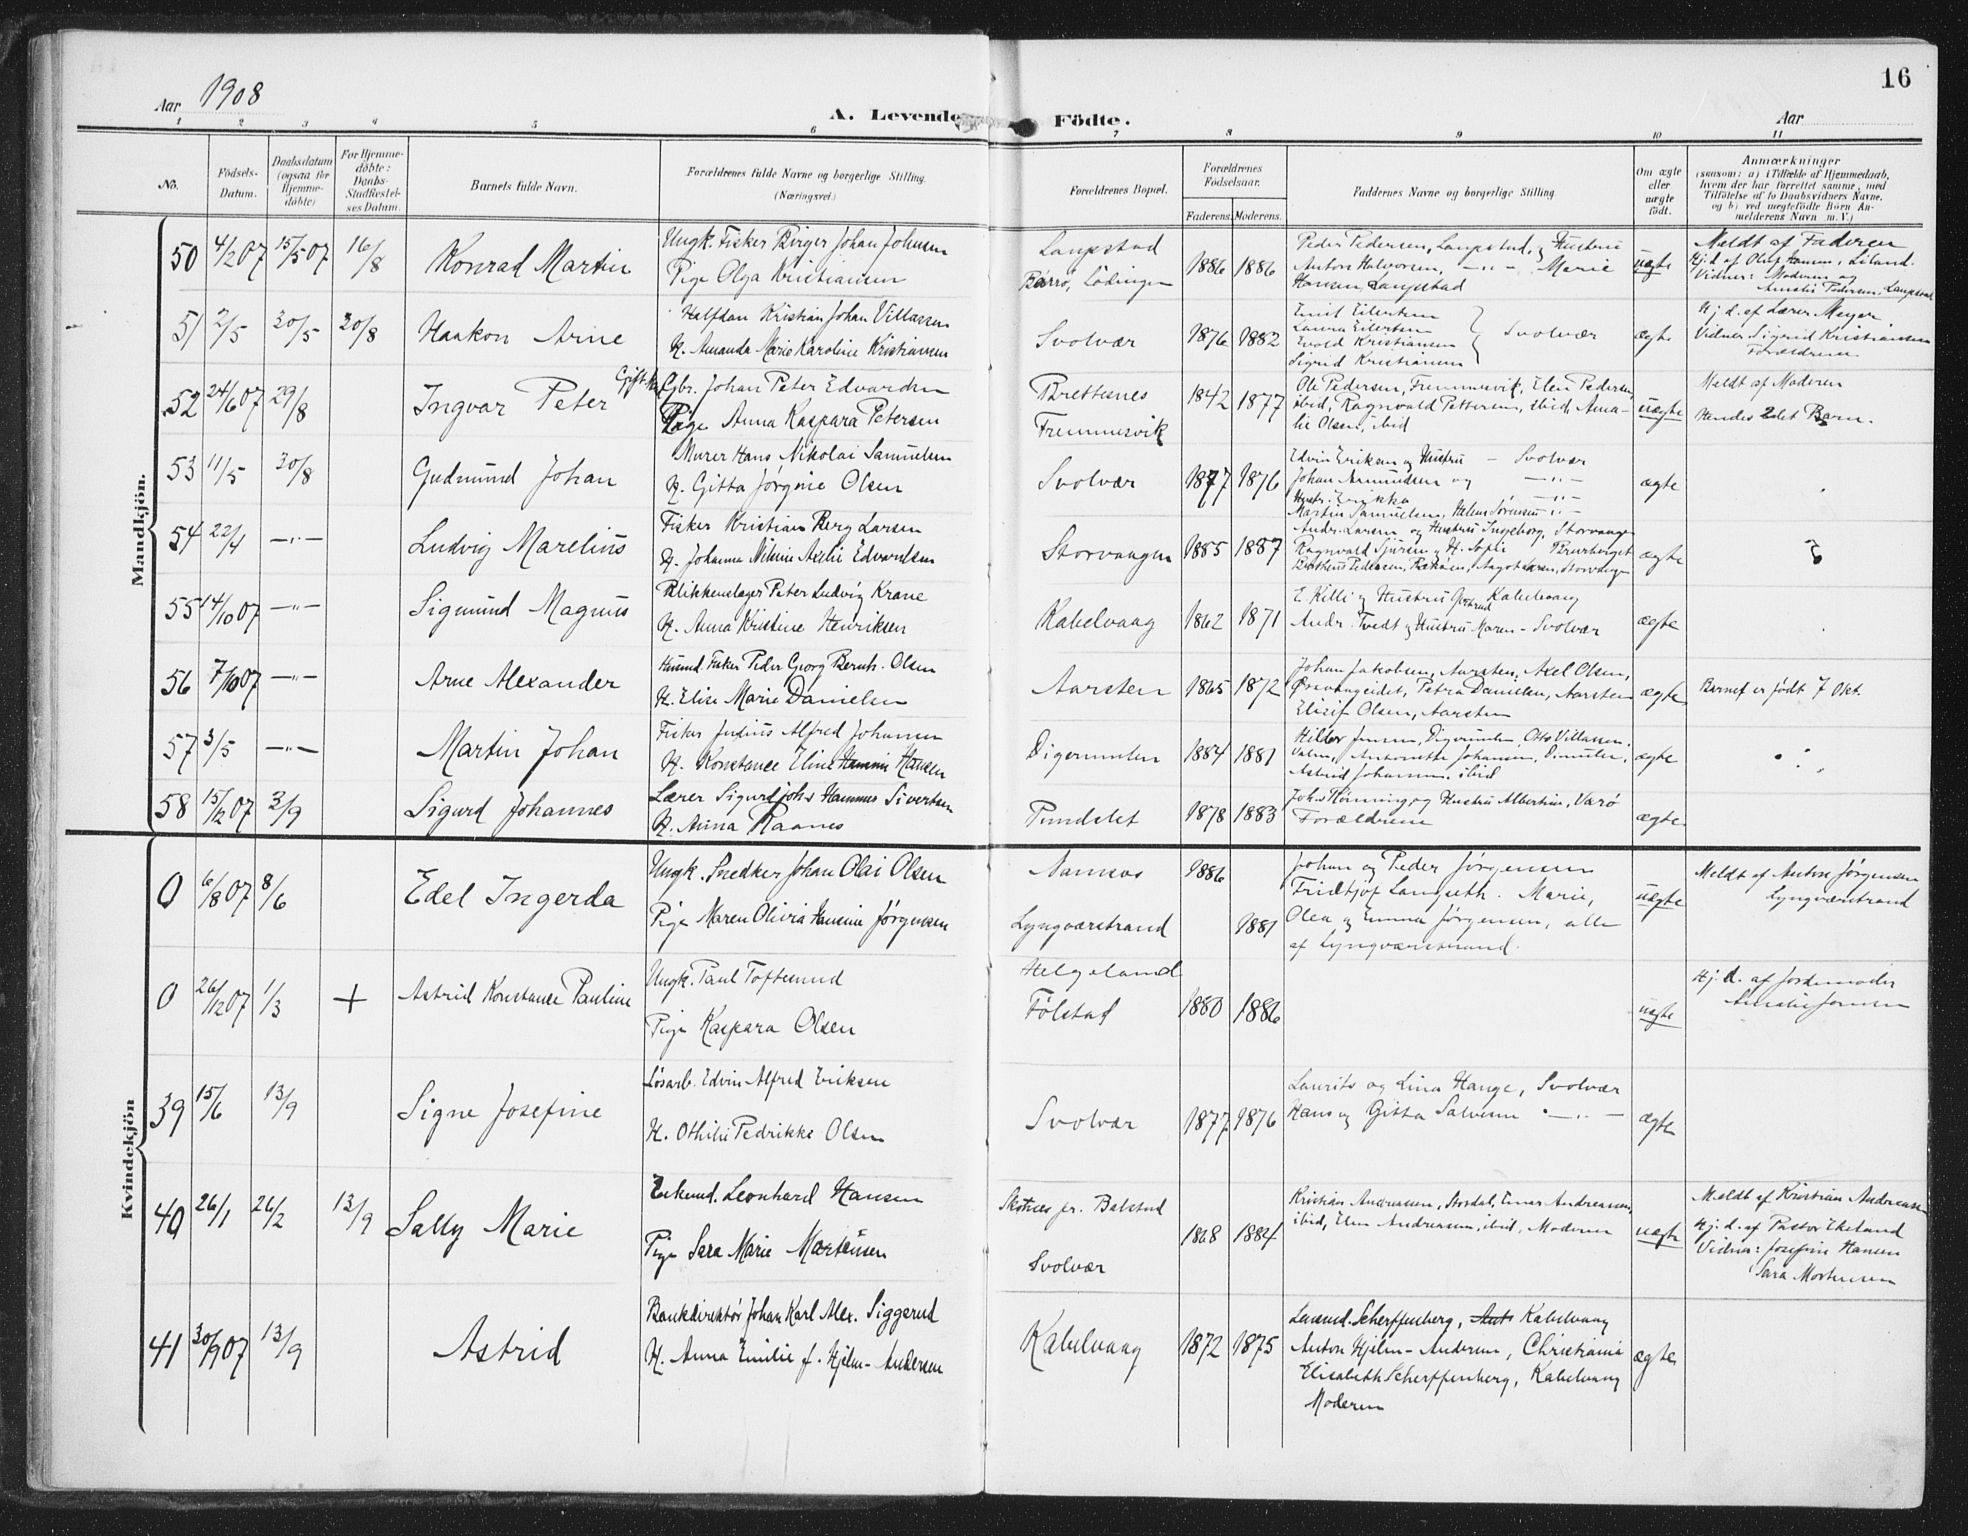 Aar 1908
A. Levende Födte.
Aar
16
1 2 3 4 5 6 7 8 9 10 11
No.
Födsels-Datum.
Daabsdatum (ogsaa for Hjemme-döbte)
For Hjemme-döbte: Daabs-Stadfæstel-ses Datum.
Barnets fulde Navn.
Forældrenes fulde Navne og borgerlige Stilling.
(Næringsvei.)
Forældrenes Bopæl.
Forældrenes Födselsaar.
Faderens. Moderens.
Faddernes Navne og borgerlige Stilling.
Om ægte eller uægte födt.
Anmærkninger
(saasom: a) i Tilfælde af Hjemmedaab, hvem der har forrettet samme, med Tilföielse af to Daabsvidners Navne, og b) ved uægtefödte Börn Anmelderens Navn m. V.)
Mandkjön.
50 4/2 07 15/5 07 16/8 Konrad Martin
Ungk. Fisker Birger Johan Johnsen
Pige Olga Kristiansen
Laupstad
Børrø, Lödingen
1886 1886
Peder Pedersen, Laupstad, og Hustru
Anton Halvorsen, -"- Marie
Hansen, Laupstad
uægte
Meldt af Faderen
Hj. d. af Oluf Hansen, Liland.
Vidner: Moderen og
Amalie Pedersen, Laupstad
51 2/5 30/5 30/8 Haakon Arne
Halfdan Kristian Johan Villassen
H. Amanda Marie Karoline Kristiansen
Svolvær
1876 1882
Emil Eilertsen
Laura Eilertsen
Evald Kristiansen
Sigrid Kristiansen
Svolvær
ægte
Hj. d. af Lærer Meyer
Vidner Sigrid Kristiansen
Forældrene
52 24/6 07 29/8 Ingvar Peter
Gift Gbr. Johan Peter Edvardsen
Pige Anna Kaspara Petersen
Brettesnes
Fremmervik
1842 1877
Ole Pedersen, Fremmervik, Elen Pedersen,
ibid, Ragnvald Pettersen, ibid, Ama-
lie Olsen, ibid
uægte
Meldt af Moderen
Hendes 2det Barn.
53 11/5 30/8 Gudmund Johan
Murer Hans Nikolai Samuelsen
H. Gitta Jørgine Olsen
Svolvær
1877 1876
Edvin Eriksen og Hustru - Svolvær
Johan Asmundsen og -"-
Hustr. Erikka -"-
Martin Samuelsen, Helene Sørensen -"-
ægte
54 22/4 -"- Ludvig Marelius
Fisker Kristian Berg Larsen
H. Johanna Nilsine Axelie Edvardsen
Storvaagen
1885 1887
Andr. Larsen og Hustru Ingeborg, Storvaagen
Ragnvald Sjursen og H. Sofie Brurberget
ægte
55 14/10 07 -"- Sigmund Magnus
Blikkenslager Peter Ludvig Krane
H. Anna Kristine Henriksen
Kabelvaag
1862 1871
E. Killi og Hustru Gertrud Kabelvaag
Andr. Tvedt og Hustru Maren - Svolvær
ægte
56 7/10 07 -"- Arne Alexander
Husmd. Fisker Peder Georg Bernh. Olsen
H. Elise Marie Danielsen
Aarsten
1865 1872
Johan Jakobsen, Aarsten, Axel Olsen,
Ørsvaageidet, Petra Danielsen, Aarsten
Elisif Olsen, Aarsten
ægte
Barnet er født 7 Okt.
57 3/5 -"- Martin Johan
Fisker Julius Alfred Johansen
H. Konstance Eline Hansen
Digermulen
1884 1881
Hiller Jensen, Digermulen, Otto Villassen,
Valen, Antonette Johansen, D.mulen,
Astrid Johansen, ibid
ægte
58 15/12 07 3/9 Sigurd Johannes
Lærer Sigurd Johs Hammes Sivertsen
H. Anna Raanes
Pundslet
1878 1883
Johs Rønning og Hustru Albertine, Varö
Forældrene
ægte
Kvindekjön
0 6/8 07 8/6 Edel Ingerda
Ungk. Snedker Johan Olai Olsen
Pige Maren Olivia Hansine Jørgensen
Namsos
Lyngværstrand
1886
1881
Johan og Peder Jørgensen
Fridtjof Langseth. Marie,
Olea og Emma Jørgensen, alle
af Lyngværstrand.
uægte
Meldt af Anton Jørgensen
Lyngværstrand
0 26/12 07 1/3 + Astrid Konstanse Pauline
Ungk. Paul Toftesund
Pige Kaspara Olsen
Helgeland
Følstad
1880 1886
uægte
Hj. d. af Jordemoder
Amalie Jensen
39 15/6 13/9 Signe Josefine
Løsarb. Edvin Alfred Eriksen
H. Othilie Fedrikke Olsen
Svolvær
1877 1876
Laurits og Lina Hauge, Svolvær
Hans og Gitta Salvesen -"-
ægte
40 26/1 26/2 13/9 Sally Marie
Enkemd. Leonhard Hansen
Pige Sara Marie Mortensen
Skotnes pr. Balstad
Svolvær
1868 1884
Kristian Andreassen, Stordal, Einar Andreassen,
ibid, Elen Andreassen, ibid, Moderen
uægte
Meldt af Kristian Andreassen
Hj. d. af Pastor Ekeland
Vidner: Josefine Hansen
Sara Mortensen
41 30/9 07 13/9 Astrid
Bankdirektör Johan Karl Alex. Siggerud
H. Anna Emilie f. Hjelm-Andersen
Kabelvaag
1872 1875
Lensmd. Scherffenberg, Kabelvaag
Anton Hjelm-Andersen, Christiania
Elisabeth Scherffenberg, Kabelvaag
Moderen
ægte